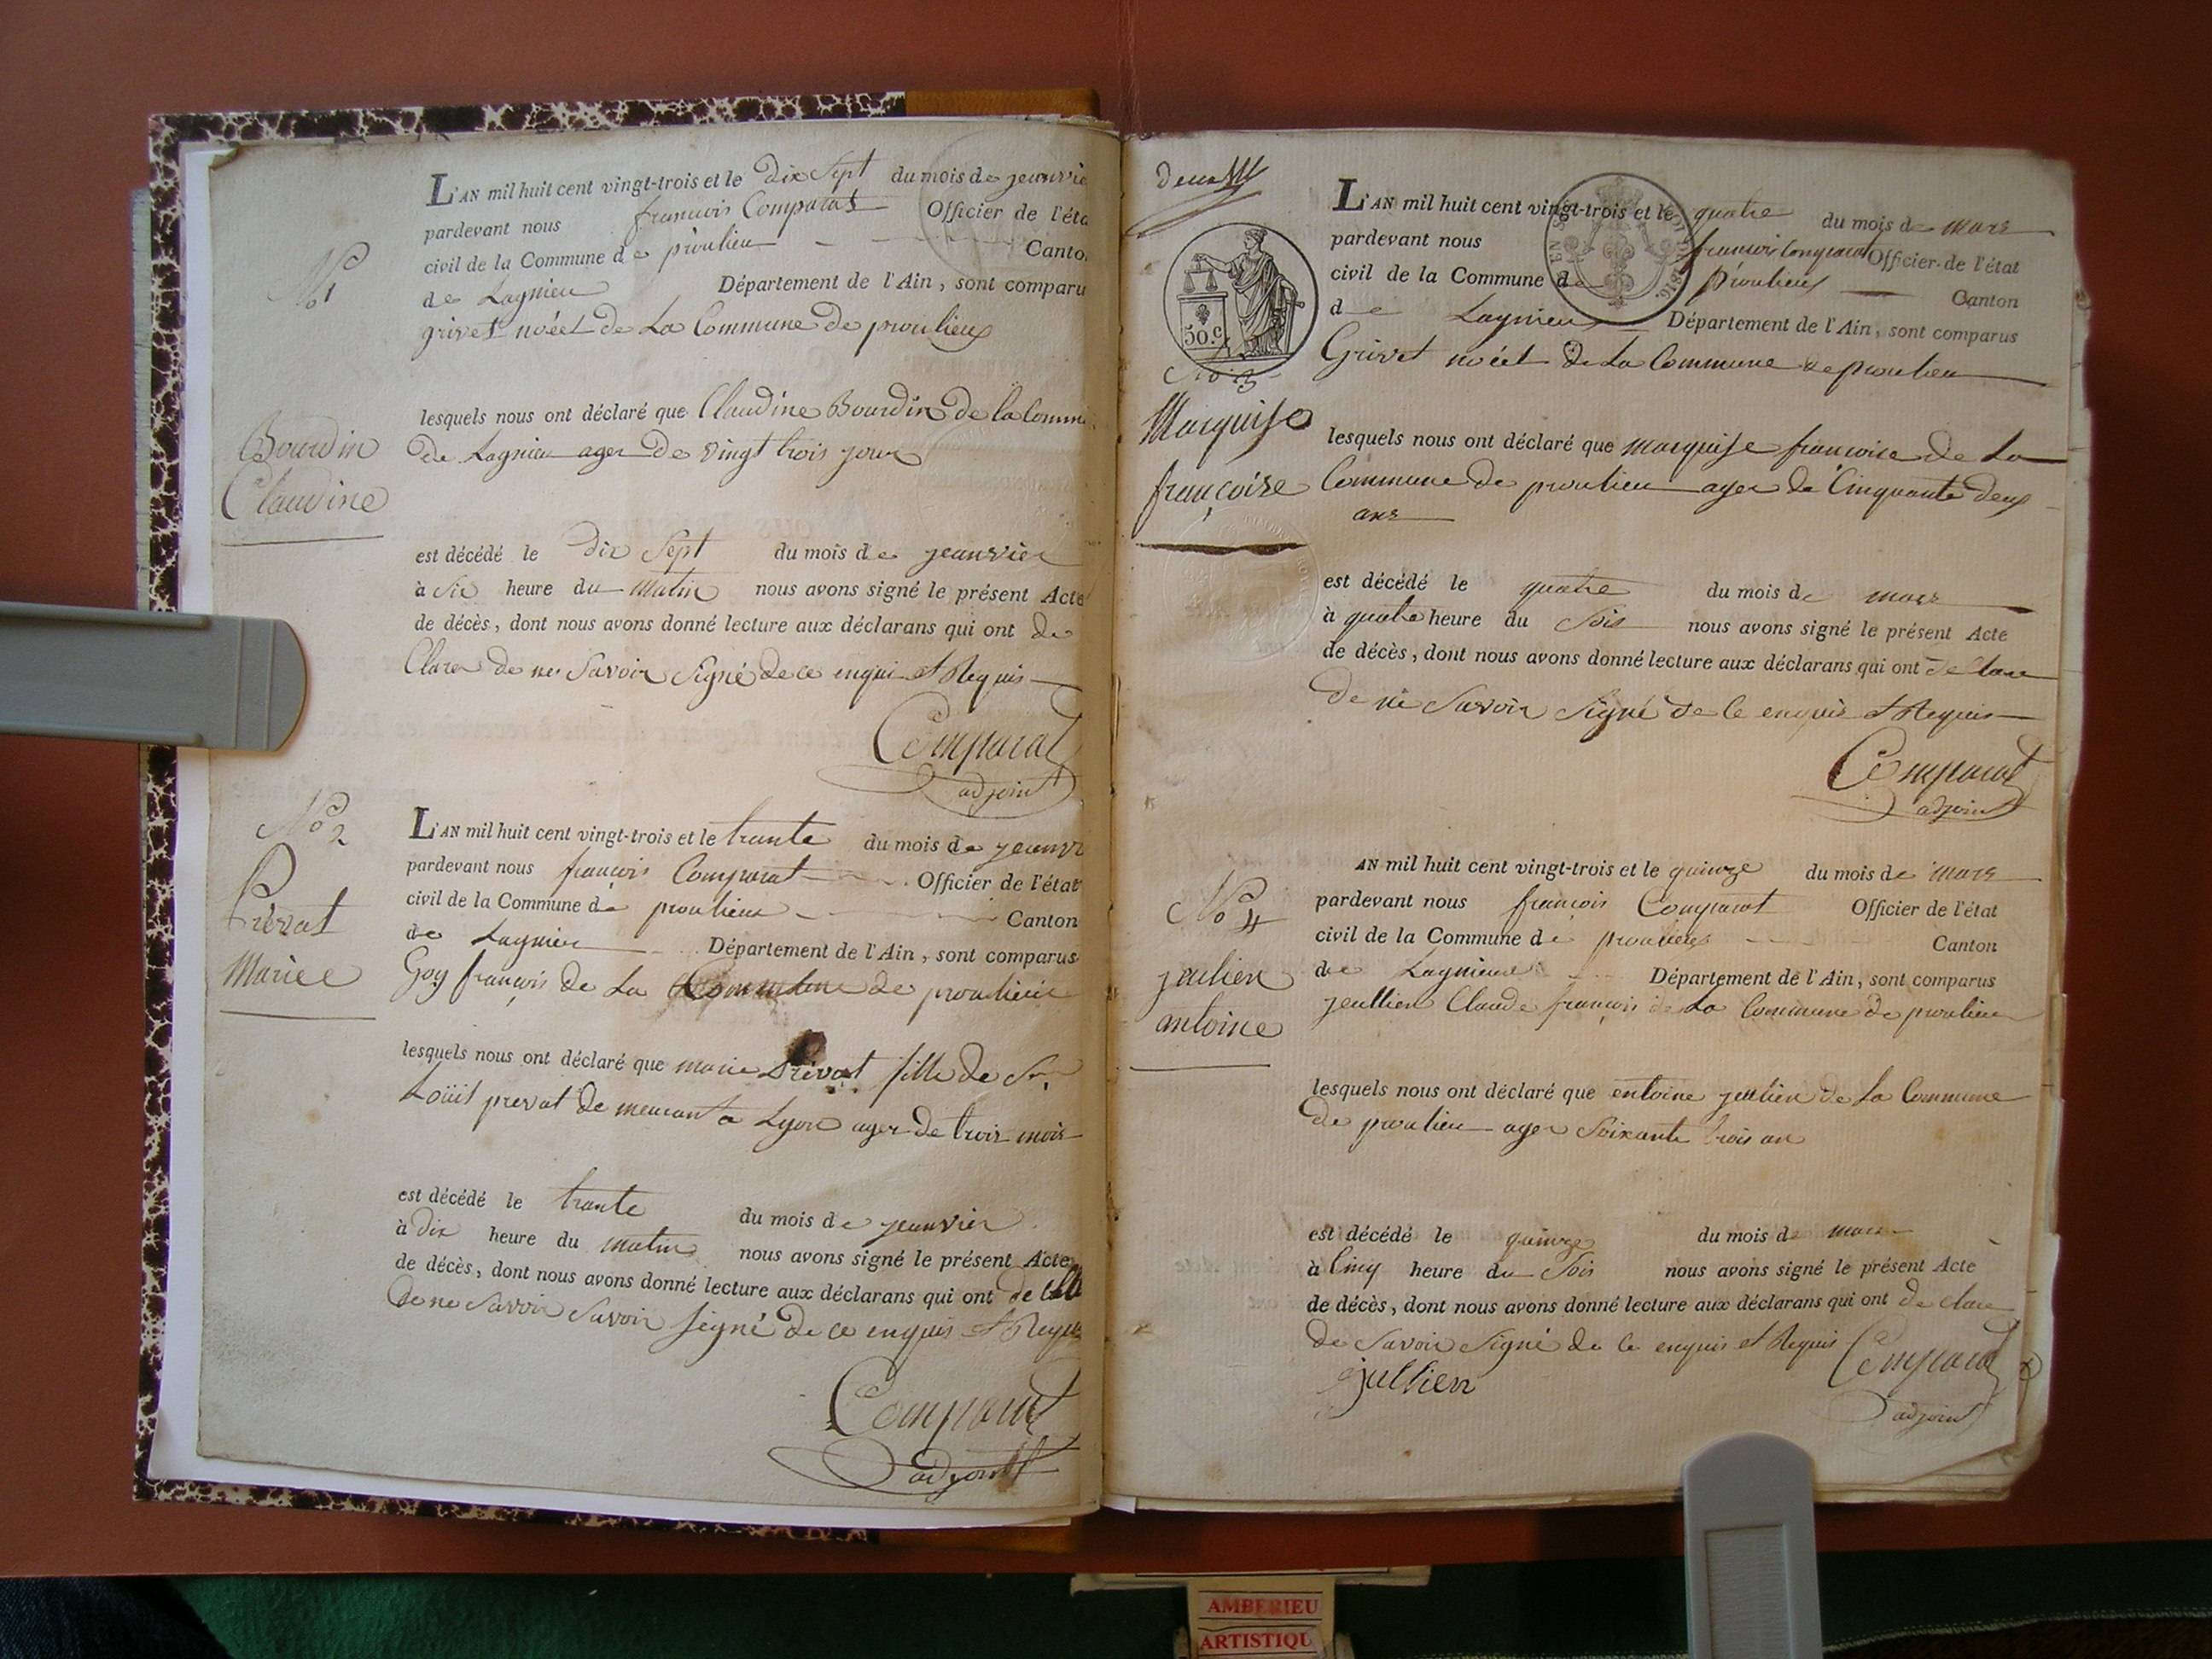 N° 1
L'AN mil huit cent vingt-trois et le dix Sept du mois de jeanvie
pardevant nous francois Comparat Officier de l'éta
civil de la Commune de proulieu Canto
de Lagnieu Département de l'Ain, sont comparu
grivet noéel de La Commune de proulieux
Bourdin
Claudine
lesquels nous ont déclaré que Claudine Bourdin de la Comm
de Lagnieu ager de vingt trois jour
est décédé le dix Sept du mois de jeanvier
à Six heure du Matin nous avons signé le présent Acte
de décès, dont nous avons donné lecture aux déclarans qui ont de
Clarer de ne Savoir Signé de ce enqui et Requis
Comparat
adjoint
N° 2
Prévat
Mariee
L'AN mil huit cent vingt-trois et le trante du mois de jeanvi
pardevant nous françois Comparat Officier de l'état
civil de la Commune de proulieu Canton
de Lagnieu Département de l'Ain, sont comparus
Goy françois de La Commune de proulieu
lesquels nous ont déclaré que marie Prévat fille de
Loüit prevat de meurant a Lyon ager de trois mois
est décédé le trante du mois de jeanvier
à dix heure du matin nous avons signé le présent Acte
de décès, dont nous avons donné lecture aux déclarans qui ont de
de ne Savoir Savoir signé de ce enquis et Requis
Comparat
adjoint
deux
50.c
N° 3
Marquise
françoise
L'AN mil huit cent vingt-trois et le quatre du mois de mars
pardevant nous francois Comparat Officier de l'état
civil de la Commune de proulieux Canton
de Lagnieu Département de l'Ain, sont comparus
Grivet noéel de La Commune de proulieu
lesquels nous ont déclaré que marquise francoise de La
Commune de proulieu ager de Cinquante deux
ans
est décédé le quatre du mois de mars
à quatre heure du Soir nous avons signé le présent Acte
de décès, dont nous avons donné lecture aux déclarans qui ont de clare
de ne Savoir Signé de Ce enquis et Requis
Comparat
adjoint
N° 4
jeulien
antoine
AN mil huit cent vingt-trois et le quinze du mois de mars
pardevant nous françois Comparat Officier de l'état
civil de la Commune de proulieux Canton
de Lagnieux Département de l'Ain, sont comparus
jeullien Claude françois de La Commune de proulieu
lesquels nous ont déclaré que entoine jeulien de La Commune
de proulieu ager Soixante trois an
est décédé le quinze du mois de mars
à Cinq heure du Soir nous avons signé le présent Acte
de décès, dont nous avons donné lecture aux déclarans qui ont de clare
de Savoir Signé de Ce enquis et Requis
Comparat
jullien
adjoint
AMBERIEU
ARTISTIQU